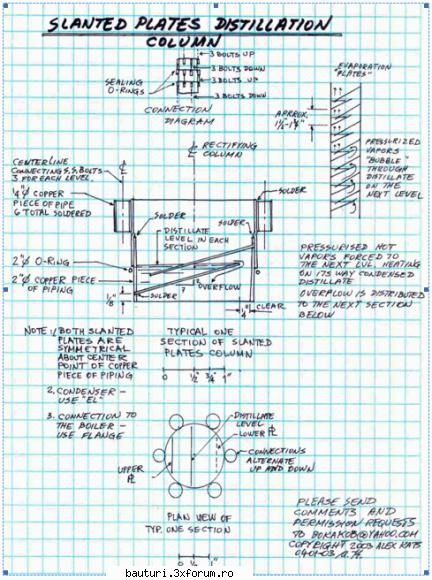 SLANTED PLATES DISTILLATION
COLUMN
3 BOLTS UP
3 BOLTS DOWN
3 BOLTS UP
3 BOLTS DOWN
SEALING
O-RINGS
CONNECTION
DIAGRAM
"EVAPORATION
PLATES"
APPROX.
PRESSURIZED
VAPORS
"BUBBLE"
THROUGH
DISTILLATE
ON THE
NEXT LEVEL
RECTIFYING
COLUMN
CENTERLINE
CONNECTING S.S. BOLTS
3 FOR EACH LEVEL.
COPPER
PIECE OF PIPE
6 TOTAL SOLDERED
SOLDER
SOLDER
SOLDER
DISTILLATE
LEVEL IN EACH
SECTION
2"Ø O-RING
2"Ø COPPER PIECE
OF PIPING
OVERFLOW
1/8"
SOLDER
1/4"
CLEAR
PRESSURISED HOT
VAPORS FORCED TO
THE NEXT LVL. HEATING
ON ITS WAY CONDENSED
DISTILLATE
OVERFLOW IS DISTRIBUTED
TO THE NEXT SECTION
BELOW
NOTE: 1. BOTH SLANTED
PLATES ARE
SYMMETRICAL
ABOUT CENTER
POINT OF COPPER
PIECE OF PIPING
TYPICAL ONE
SECTION OF SLANTED
PLATES COLUMN
0 1/2" 3/4" 1"
2. CONDENSER –
USE "EL"
3. CONNECTION TO
THE BOILER –
USE FLANGE
DISTILLATE
LEVEL
LOWER PL
CONNECTIONS
ALTERNATE
UP AND DOWN
UPPER
PL
PLAN VIEW OF
TYP. ONE SECTION
0 1/2" 1"
PLEASE SEND
COMMENTS AND
PERMISSION REQUESTS
TO BOKAKOB@YAHOO.COM
COPYRIGHT 2003 ALEX KATS
bauturi.3xforum.ro